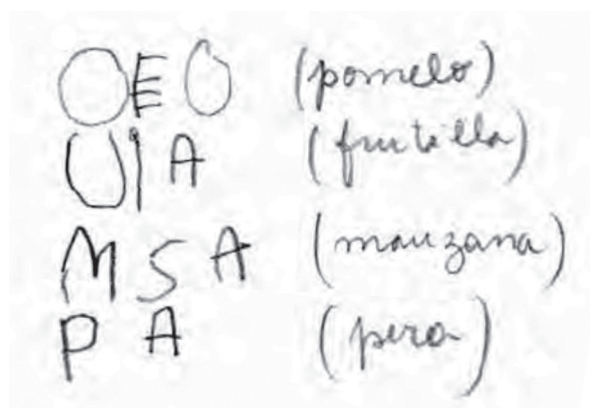 OEO (pomelo)
UIA (frutilla)
MSA (manzana)
PA (pera)